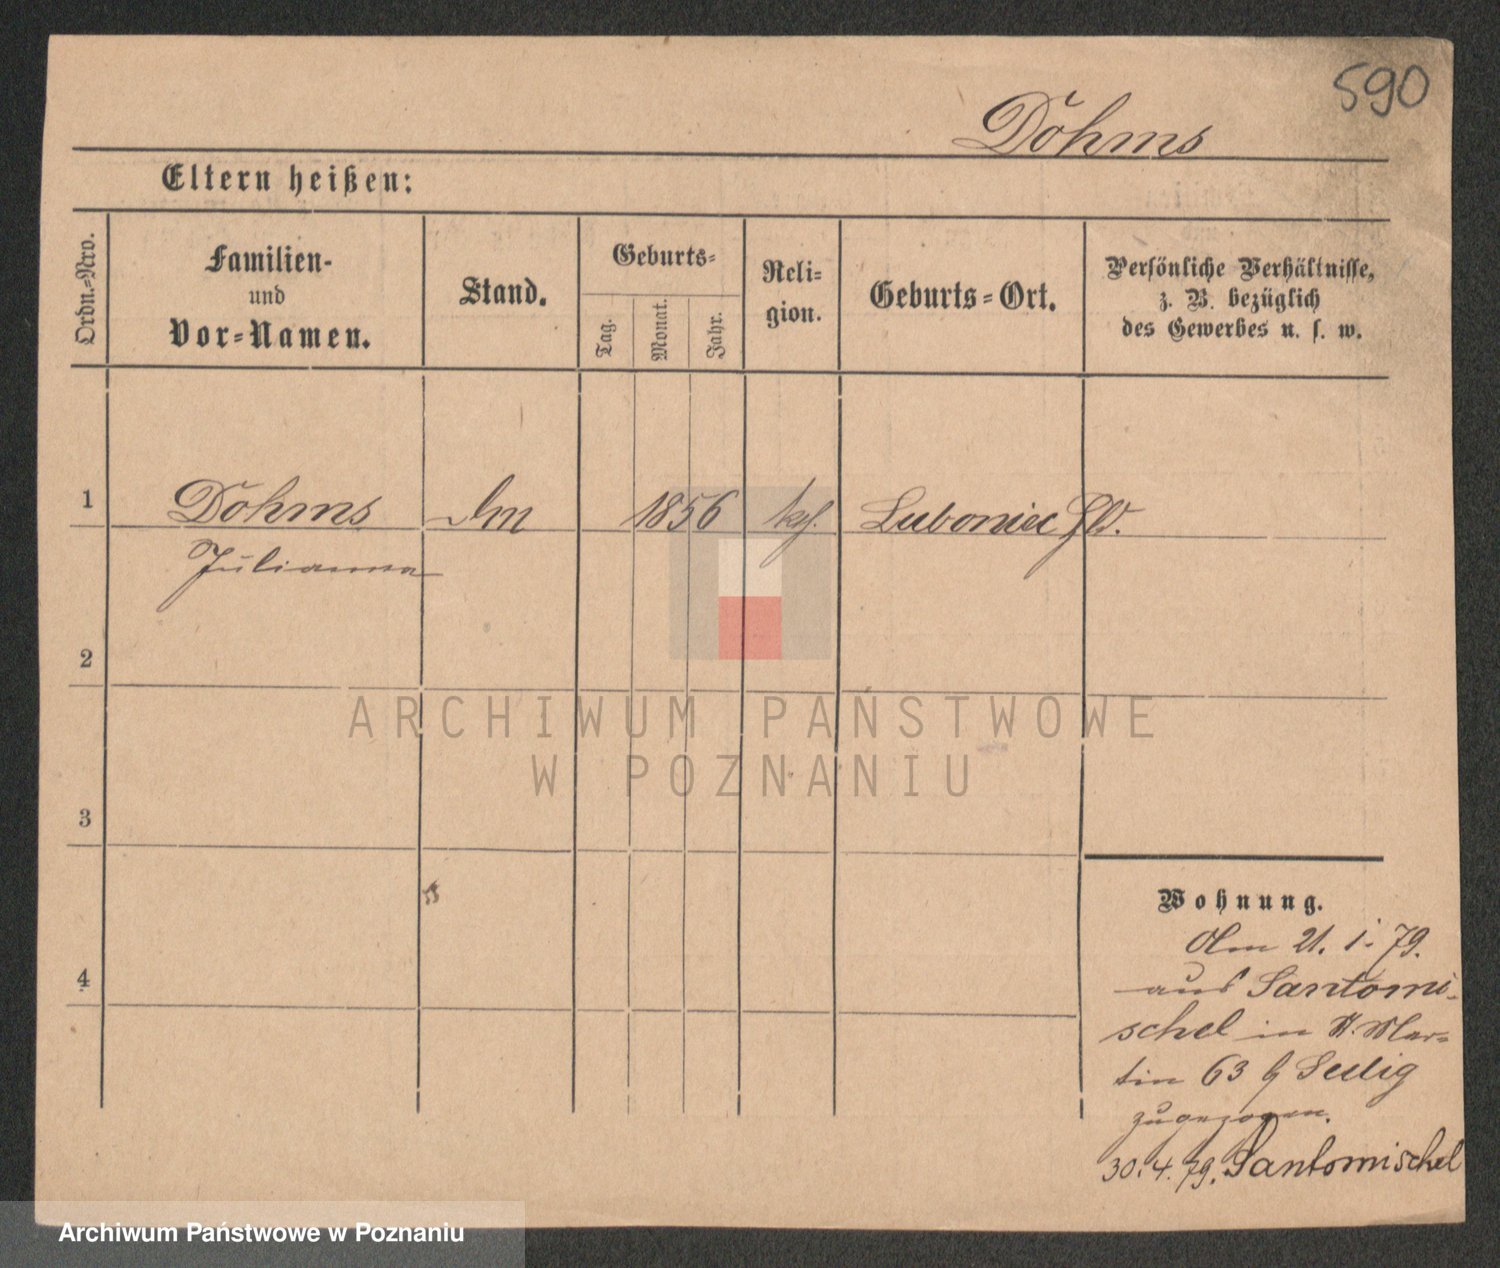 590
Döhms
Eltern heißen:
Ordn.-Nro.
Familien-
und
Vor-Namen.
Stand.
Geburts-
Tag.
Monat.
Jahr.
Reli-
gion.
Geburts-Ort.
Persönliche Verhältnisse,
z. B. bezüglich
des Gewerbes u. s. w.
1
Döhms
1856
Luboniec
Julianna
2
ARCHIWUM PAŃSTWOWE
W POZNANIU
3
4
Wohnung.
Am 21. 1. 79.
aus Santomi-
schel in St. Mar-
tin 63 b Seelig
zugezogen.
30.4.79. Santomischel
Archiwum Państwowe w Poznaniu